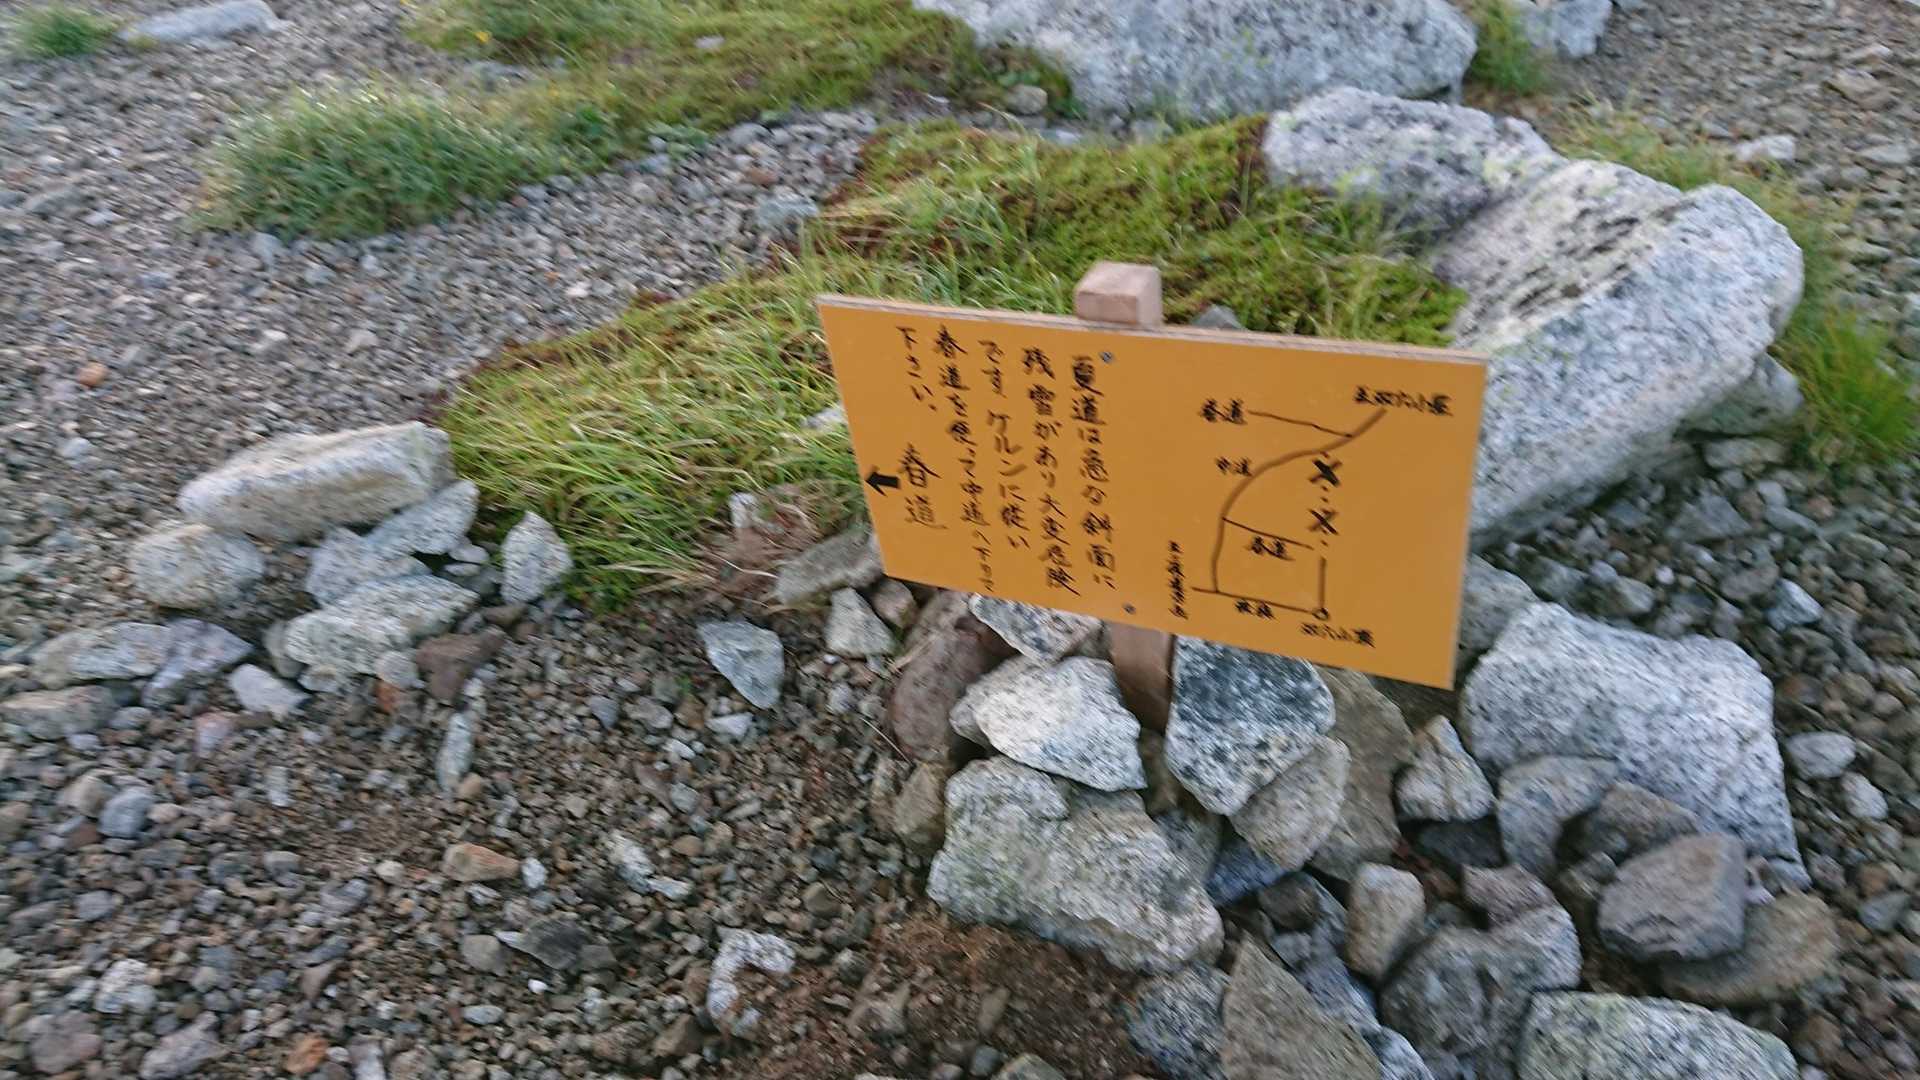 夏道は急な斜面に
残雪があり大変危険
です。ケルンに従い
春道を使って中道へ下りて
下さい、
春道
春道
中道
春道
双六小屋